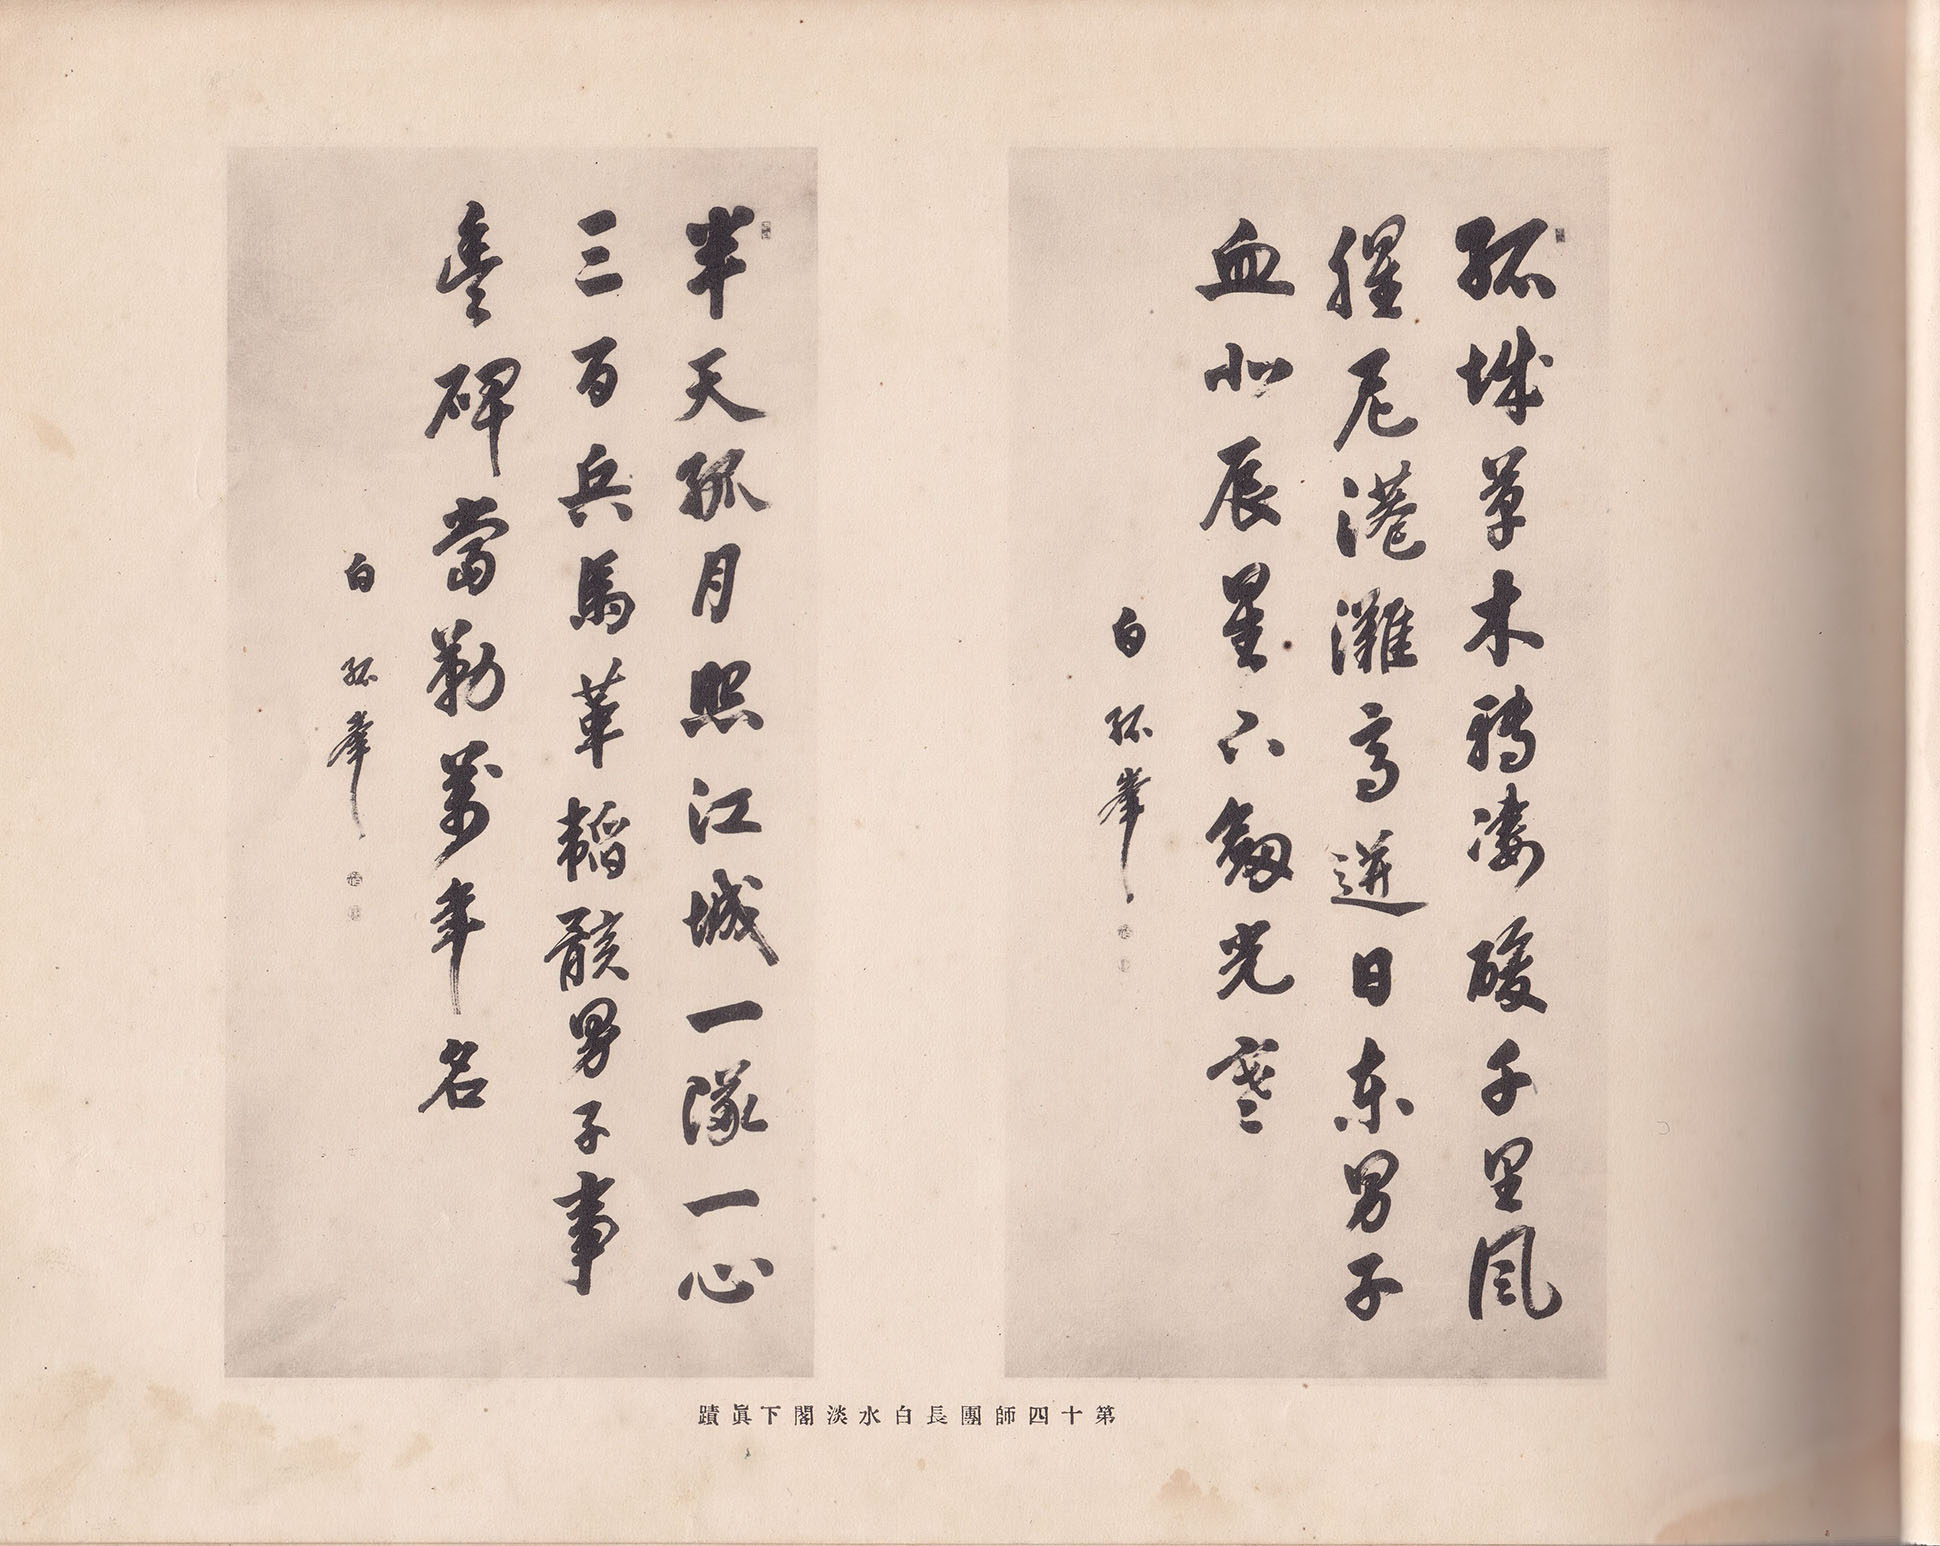 孤城草木轉凄酸千里風
腥尼港灘高迸日東男子
血北辰星下劔光寒
白孤峯
半天孤月照江城一隊一心
三百兵馬革韜骸男子事
豊碑當勒萬年名
白孤峯
第十四師團長白水淡閣下眞蹟